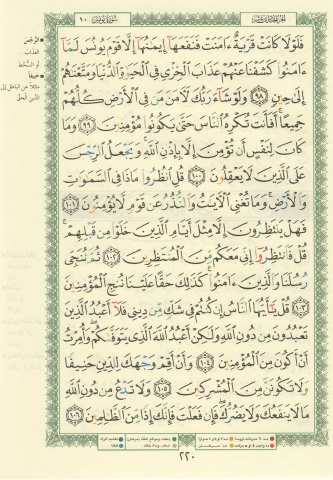 سورة يونس ١٠
فَلَوْلَا كَانَتْ قَرْيَةٌ ءَامَنَتْ فَنَفَعَهَآ إِيمَٰنُهَآ إِلَّا قَوْمَ يُونُسَ لَمَّآ
ءَامَنُوا۟ كَشَفْنَا عَنْهُمْ عَذَابَ ٱلْخِزْىِ فِى ٱلْحَيَوٰةِ ٱلدُّنْيَا وَمَتَّعْنَٰهُمْ
إِلَىٰ حِينٍ ٩٨ وَلَوْ شَآءَ رَبُّكَ لَءَامَنَ مَن فِى ٱلْأَرْضِ كُلُّهُمْ
جَمِيعًا أَفَأَنتَ تُكْرِهُ ٱلنَّاسَ حَتَّىٰ يَكُونُوا۟ مُؤْمِنِينَ ٩٩ وَمَا
كَانَ لِنَفْسٍ أَن تُؤْمِنَ إِلَّا بِإِذْنِ ٱللَّهِ وَيَجْعَلُ ٱلرِّجْسَ
عَلَى ٱلَّذِينَ لَا يَعْقِلُونَ ١٠٠ قُلِ ٱنظُرُوا۟ مَاذَا فِى ٱلسَّمَٰوَٰتِ
وَٱلْأَرْضِ وَمَا تُغْنِى ٱلْءَايَٰتُ وَٱلنُّذُرُ عَن قَوْمٍ لَّا يُؤْمِنُونَ ١٠١
فَهَلْ يَنتَظِرُونَ إِلَّا مِثْلَ أَيَّامِ ٱلَّذِينَ خَلَوْا۟ مِن قَبْلِهِمْ
قُلْ فَٱنتَظِرُوٓا۟ إِنِّى مَعَكُم مِّنَ ٱلْمُنتَظِرِينَ ١٠٢ ثُمَّ نُنَجِّى
رُسُلَنَا وَٱلَّذِينَ ءَامَنُوا۟ كَذَٰلِكَ حَقًّا عَلَيْنَا نُنجِ ٱلْمُؤْمِنِينَ
١٠٣ قُلْ يَٰٓأَيُّهَا ٱلنَّاسُ إِن كُنتُمْ فِى شَكٍّ مِّن دِينِى فَلَآ أَعْبُدُ ٱلَّذِينَ
تَعْبُدُونَ مِن دُونِ ٱللَّهِ وَلَٰكِنْ أَعْبُدُ ٱللَّهَ ٱلَّذِى يَتَوَفَّىٰكُمْ وَأُمِرْتُ
أَنْ أَكُونَ مِنَ ٱلْمُؤْمِنِينَ ١٠٤ وَأَنْ أَقِمْ وَجْهَكَ لِلدِّينِ حَنِيفًا
وَلَا تَكُونَنَّ مِنَ ٱلْمُشْرِكِينَ ١٠٥ وَلَا تَدْعُ مِن دُونِ ٱللَّهِ
مَا لَا يَنفَعُكَ وَلَا يَضُرُّكَ فَإِن فَعَلْتَ فَإِنَّكَ إِذًا مِّنَ ٱلظَّٰلِمِينَ ١٠٦
٢٢٠
الرجس
العذاب
أو السخط
حنيفا
مائلاً عن الباطل إلى
الدين الحق